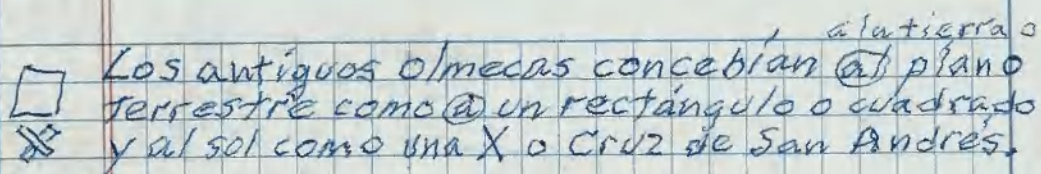 a la tierra o
Los antiguos olmecas concebían al plano
terrestre como a un rectángulo o cuadrado
y al sol como una X o Cruz de San Andrés.